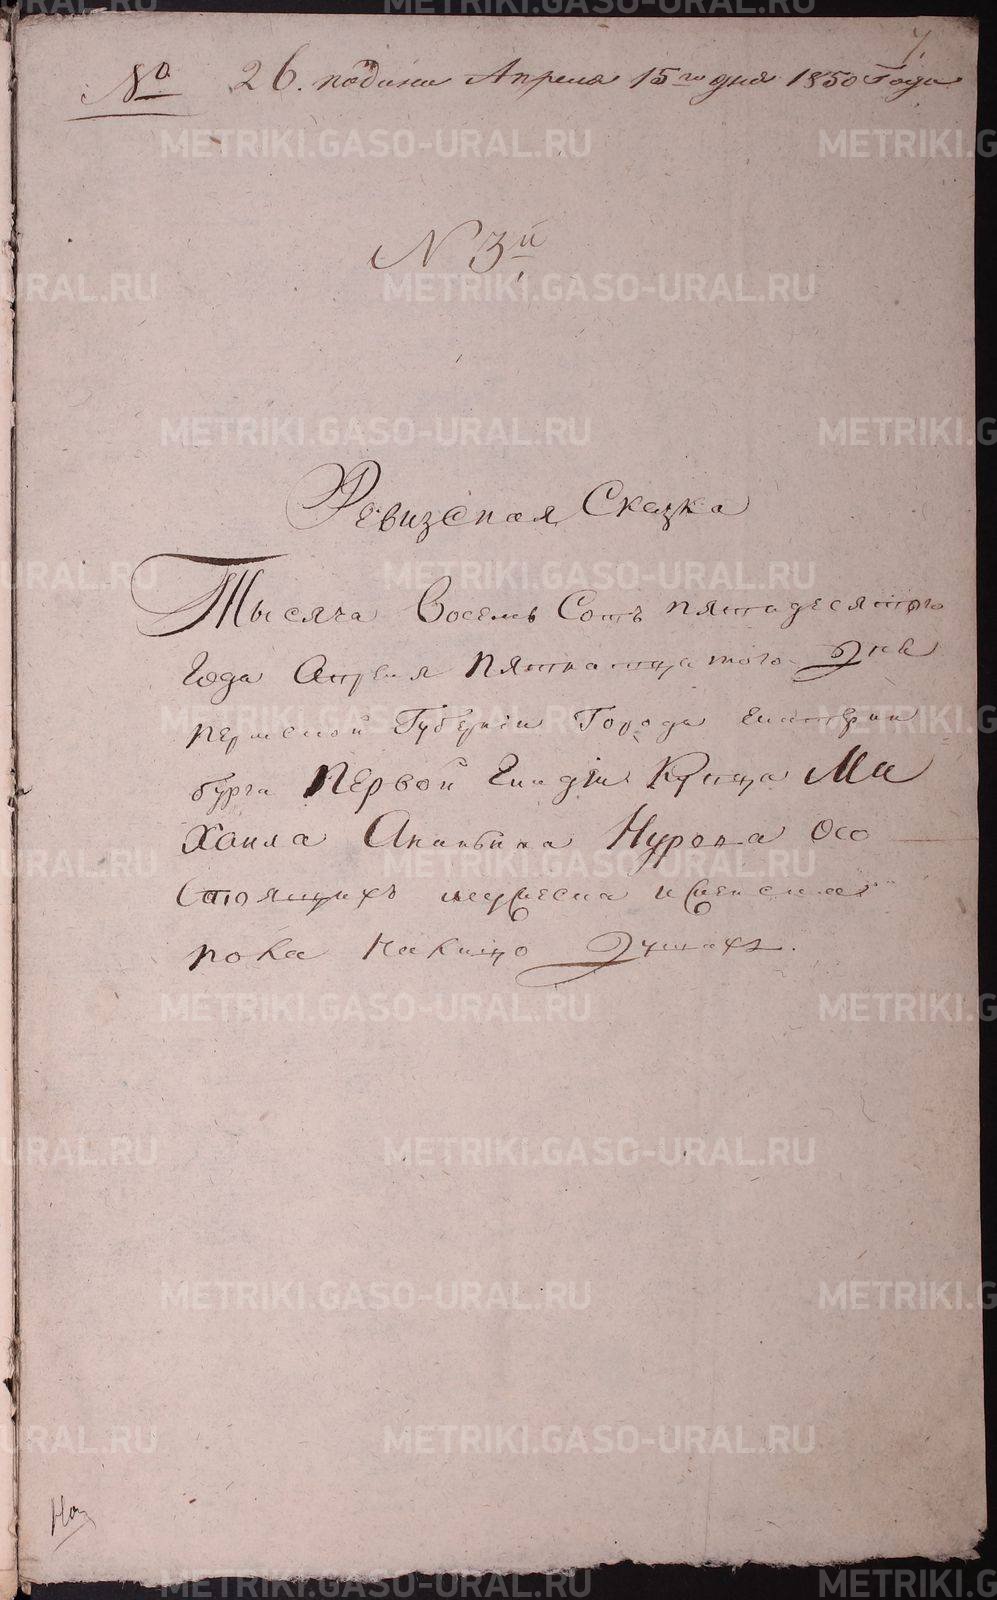 7.
№ 26. подана Апреля 15го дня 1850 Года
N 3й
Ревизская Сказка
Тысяча Восемь Сотъ пятидесятого
Года Апреля пятнатцатого Дня
пермской Губернiи Города Екатерин
бурга Первой Гилдiи Купца Ми
Хаила Ананьина Нурова Осо
Стоящихъ мужеска иженска
пола налицо Душахъ.
METRIKI.GASO-URAL.RU